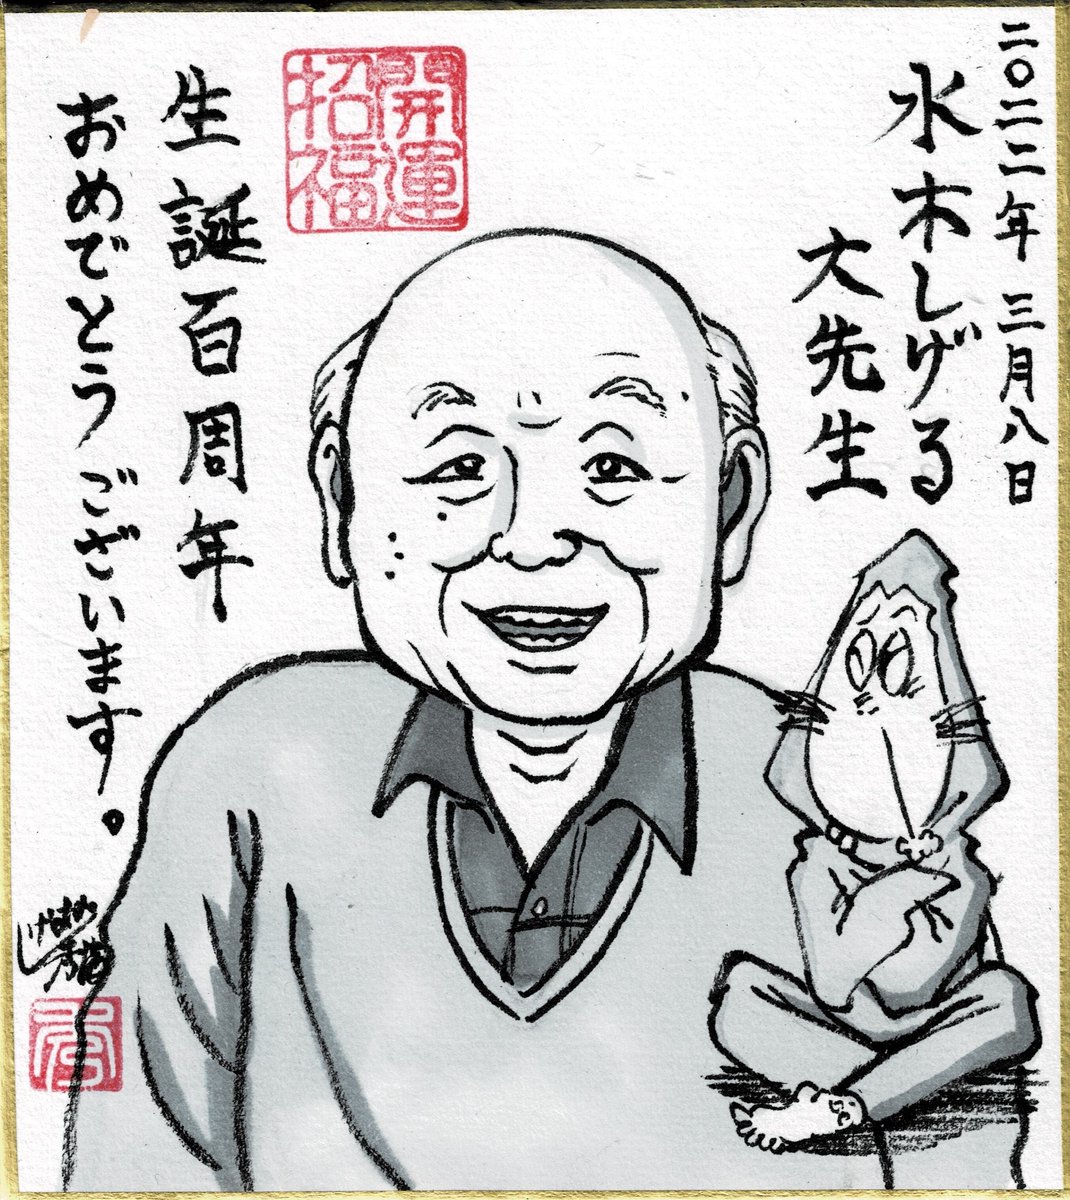 二〇二二年 三月八日
水木しげる
大先生
開運
招福
生誕百周年
おめでとうございます。